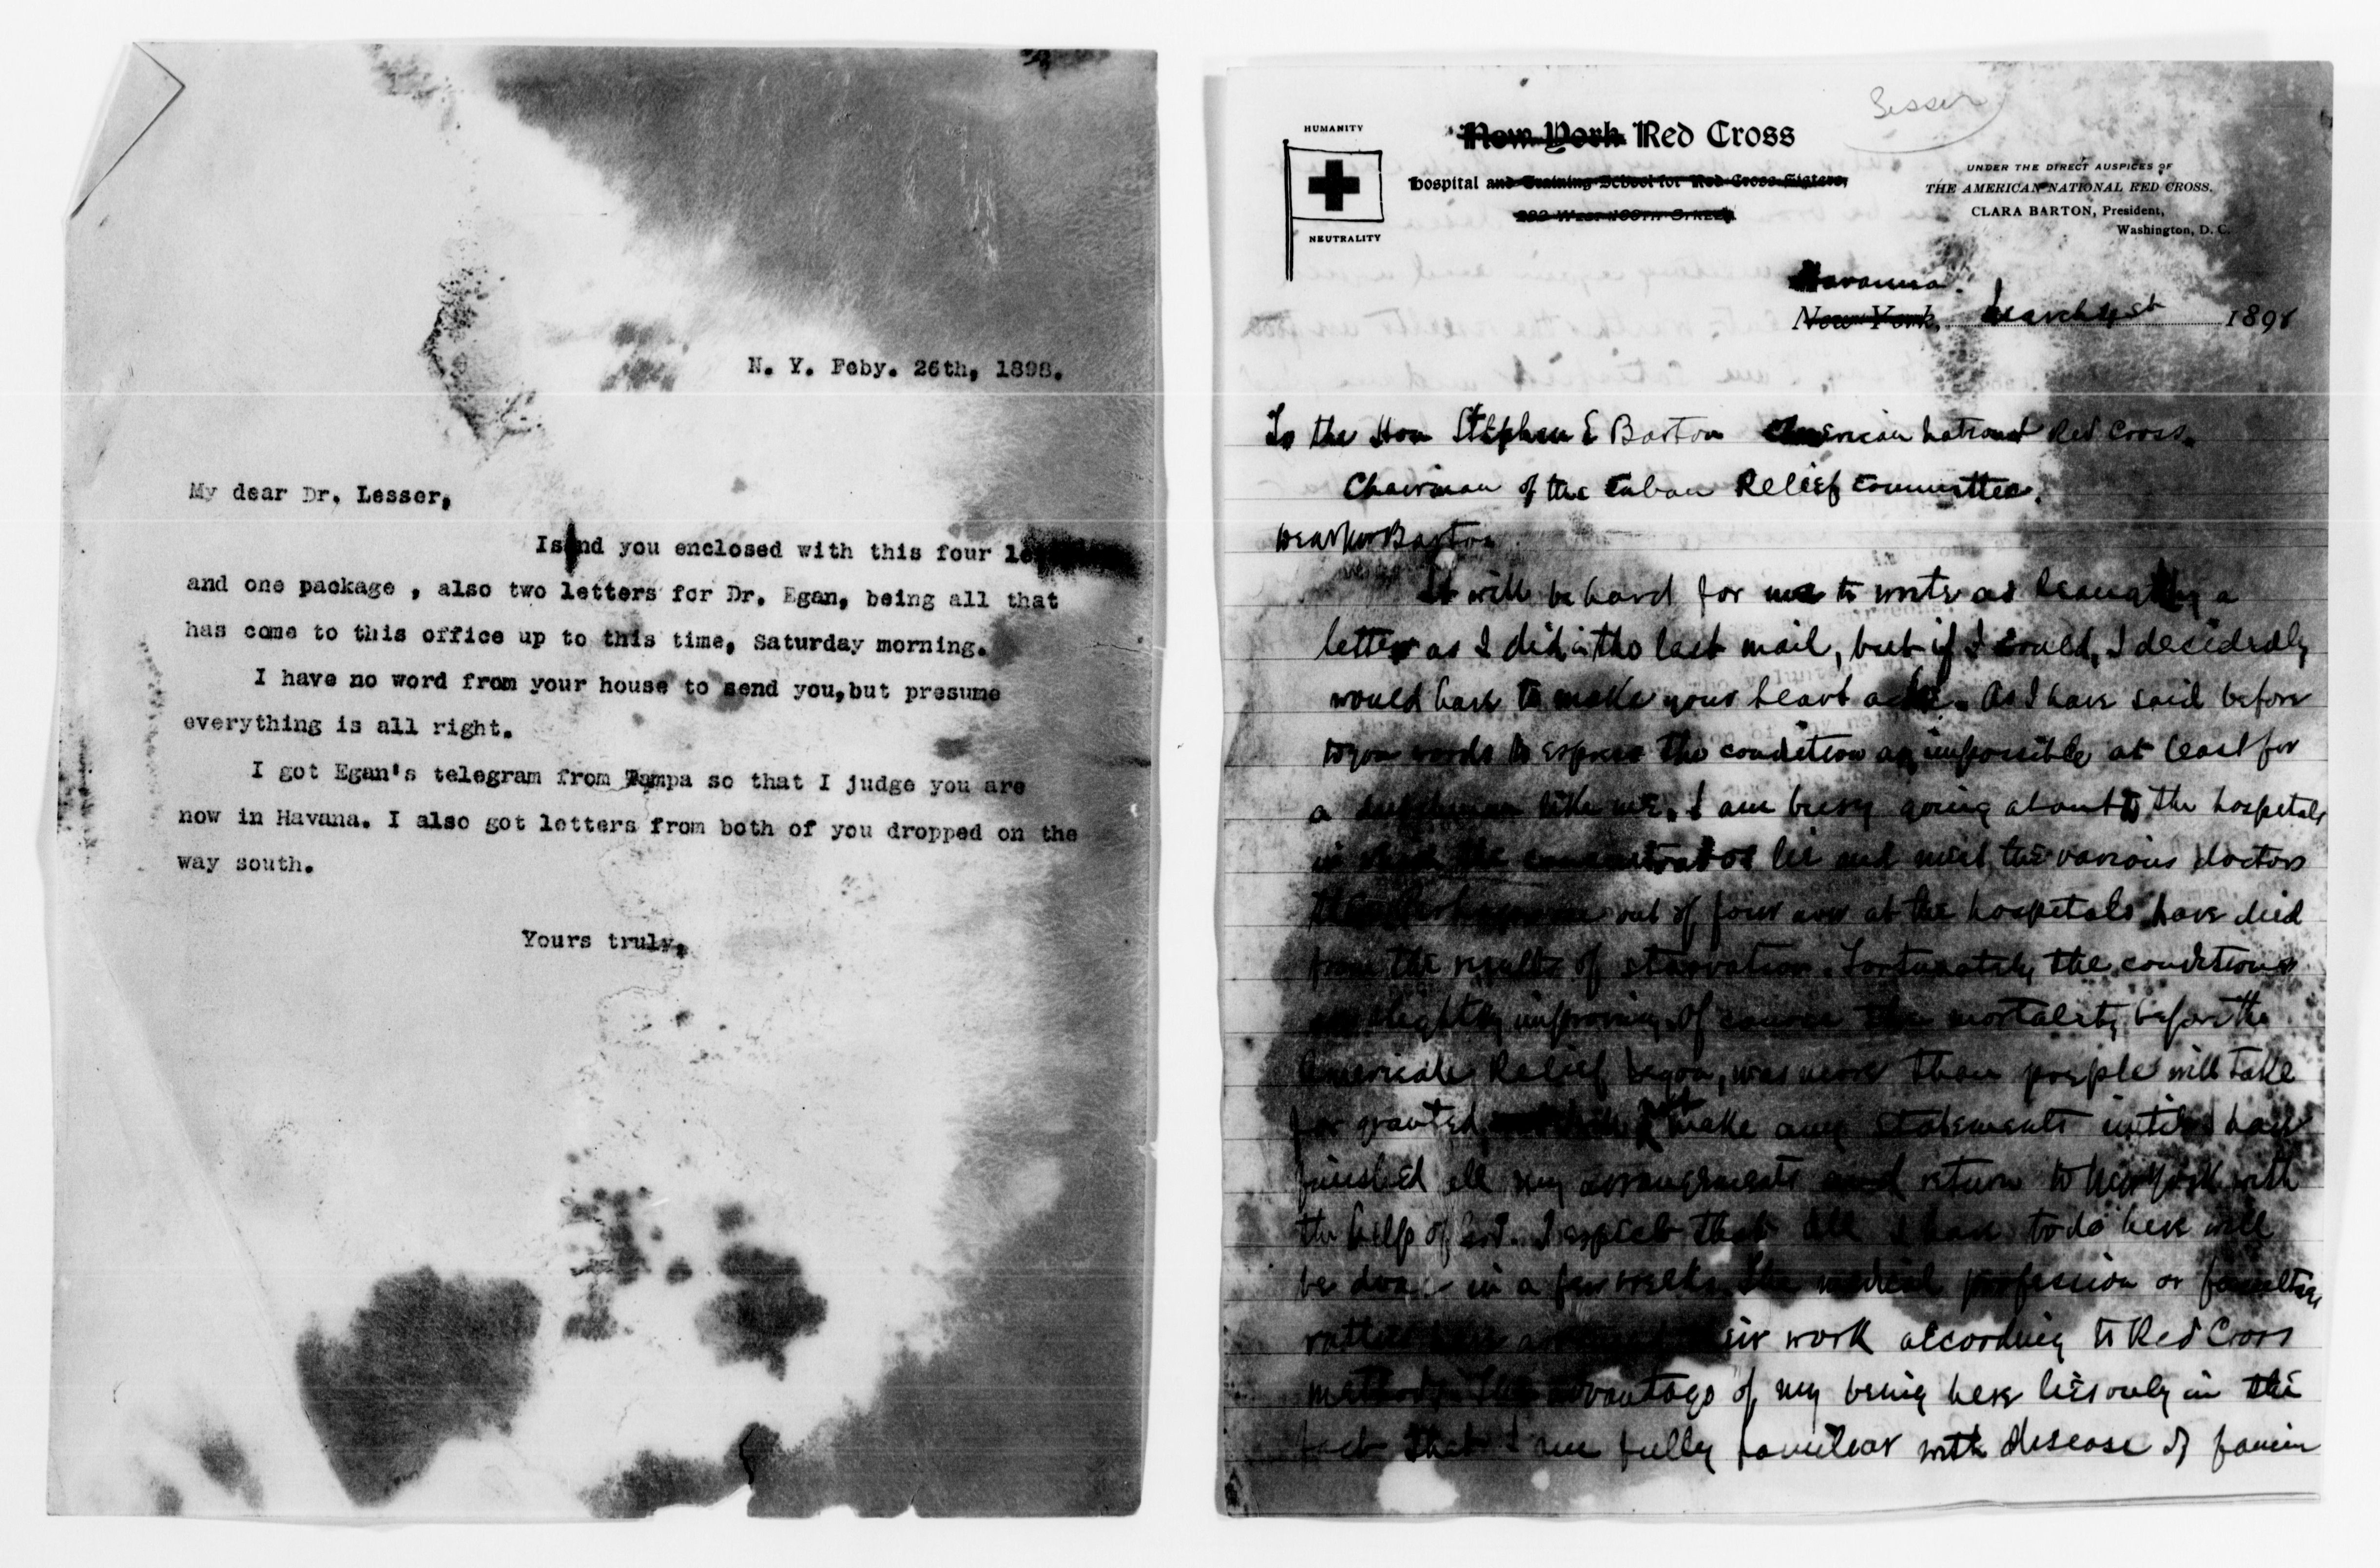 N. Y. Feby. 26th, 1898.
My dear Dr. Lesser,
I send you enclosed with this four
and one package , also two letters for Dr. Egan, being all that
has come to this office up to this time, Saturday morning.
I have no word from your house to send you, but presume
everything is all right.
I got Egan's telegram from Tampa so that I judge you are
now in Havana. I also got letters from both of you dropped on the
way south.
Yours truly,
Lesser
HUMANITY
NEUTRALITY
New York Red Cross
Hospital and Training School for Red Cross Sisters,
UNDER THE DIRECT AUSPICES OF
THE AMERICAN NATIONAL RED CROSS.
CLARA BARTON, President,
Washington, D. C.
Havanna.
New York, March 1st 1898
To the Hon Stephen E Barton American National Red Cross.
Chairman of the Cuban Relief Committee.
Dear Mr Barton
It will be hard for me to write as lengthy a
letter as I did in the last mail, but if I could, I decidedly
would have to make your heart ache. As I have said before
to you words to express the condition are impossible at least for
a dutchman like me. I am busy going about to the hospitals
in which the concentrados lie and meet the various doctors
out of four now at the hospitals have died
from the results of starvation. Fortunately the conditions
are slightly improving. Of course the mortality before the
American Relief began, was more than people will take
for granted, make any statements until I have
finished all my arrangements and return to New York with
the help of God. I expect that all I have to do here will
be done in a few weeks. The medical profession or faculties
rather have their work according to Red Cross
methods. The advantage of my being here lies only in the
fact that I am fully familiar with disease of famin